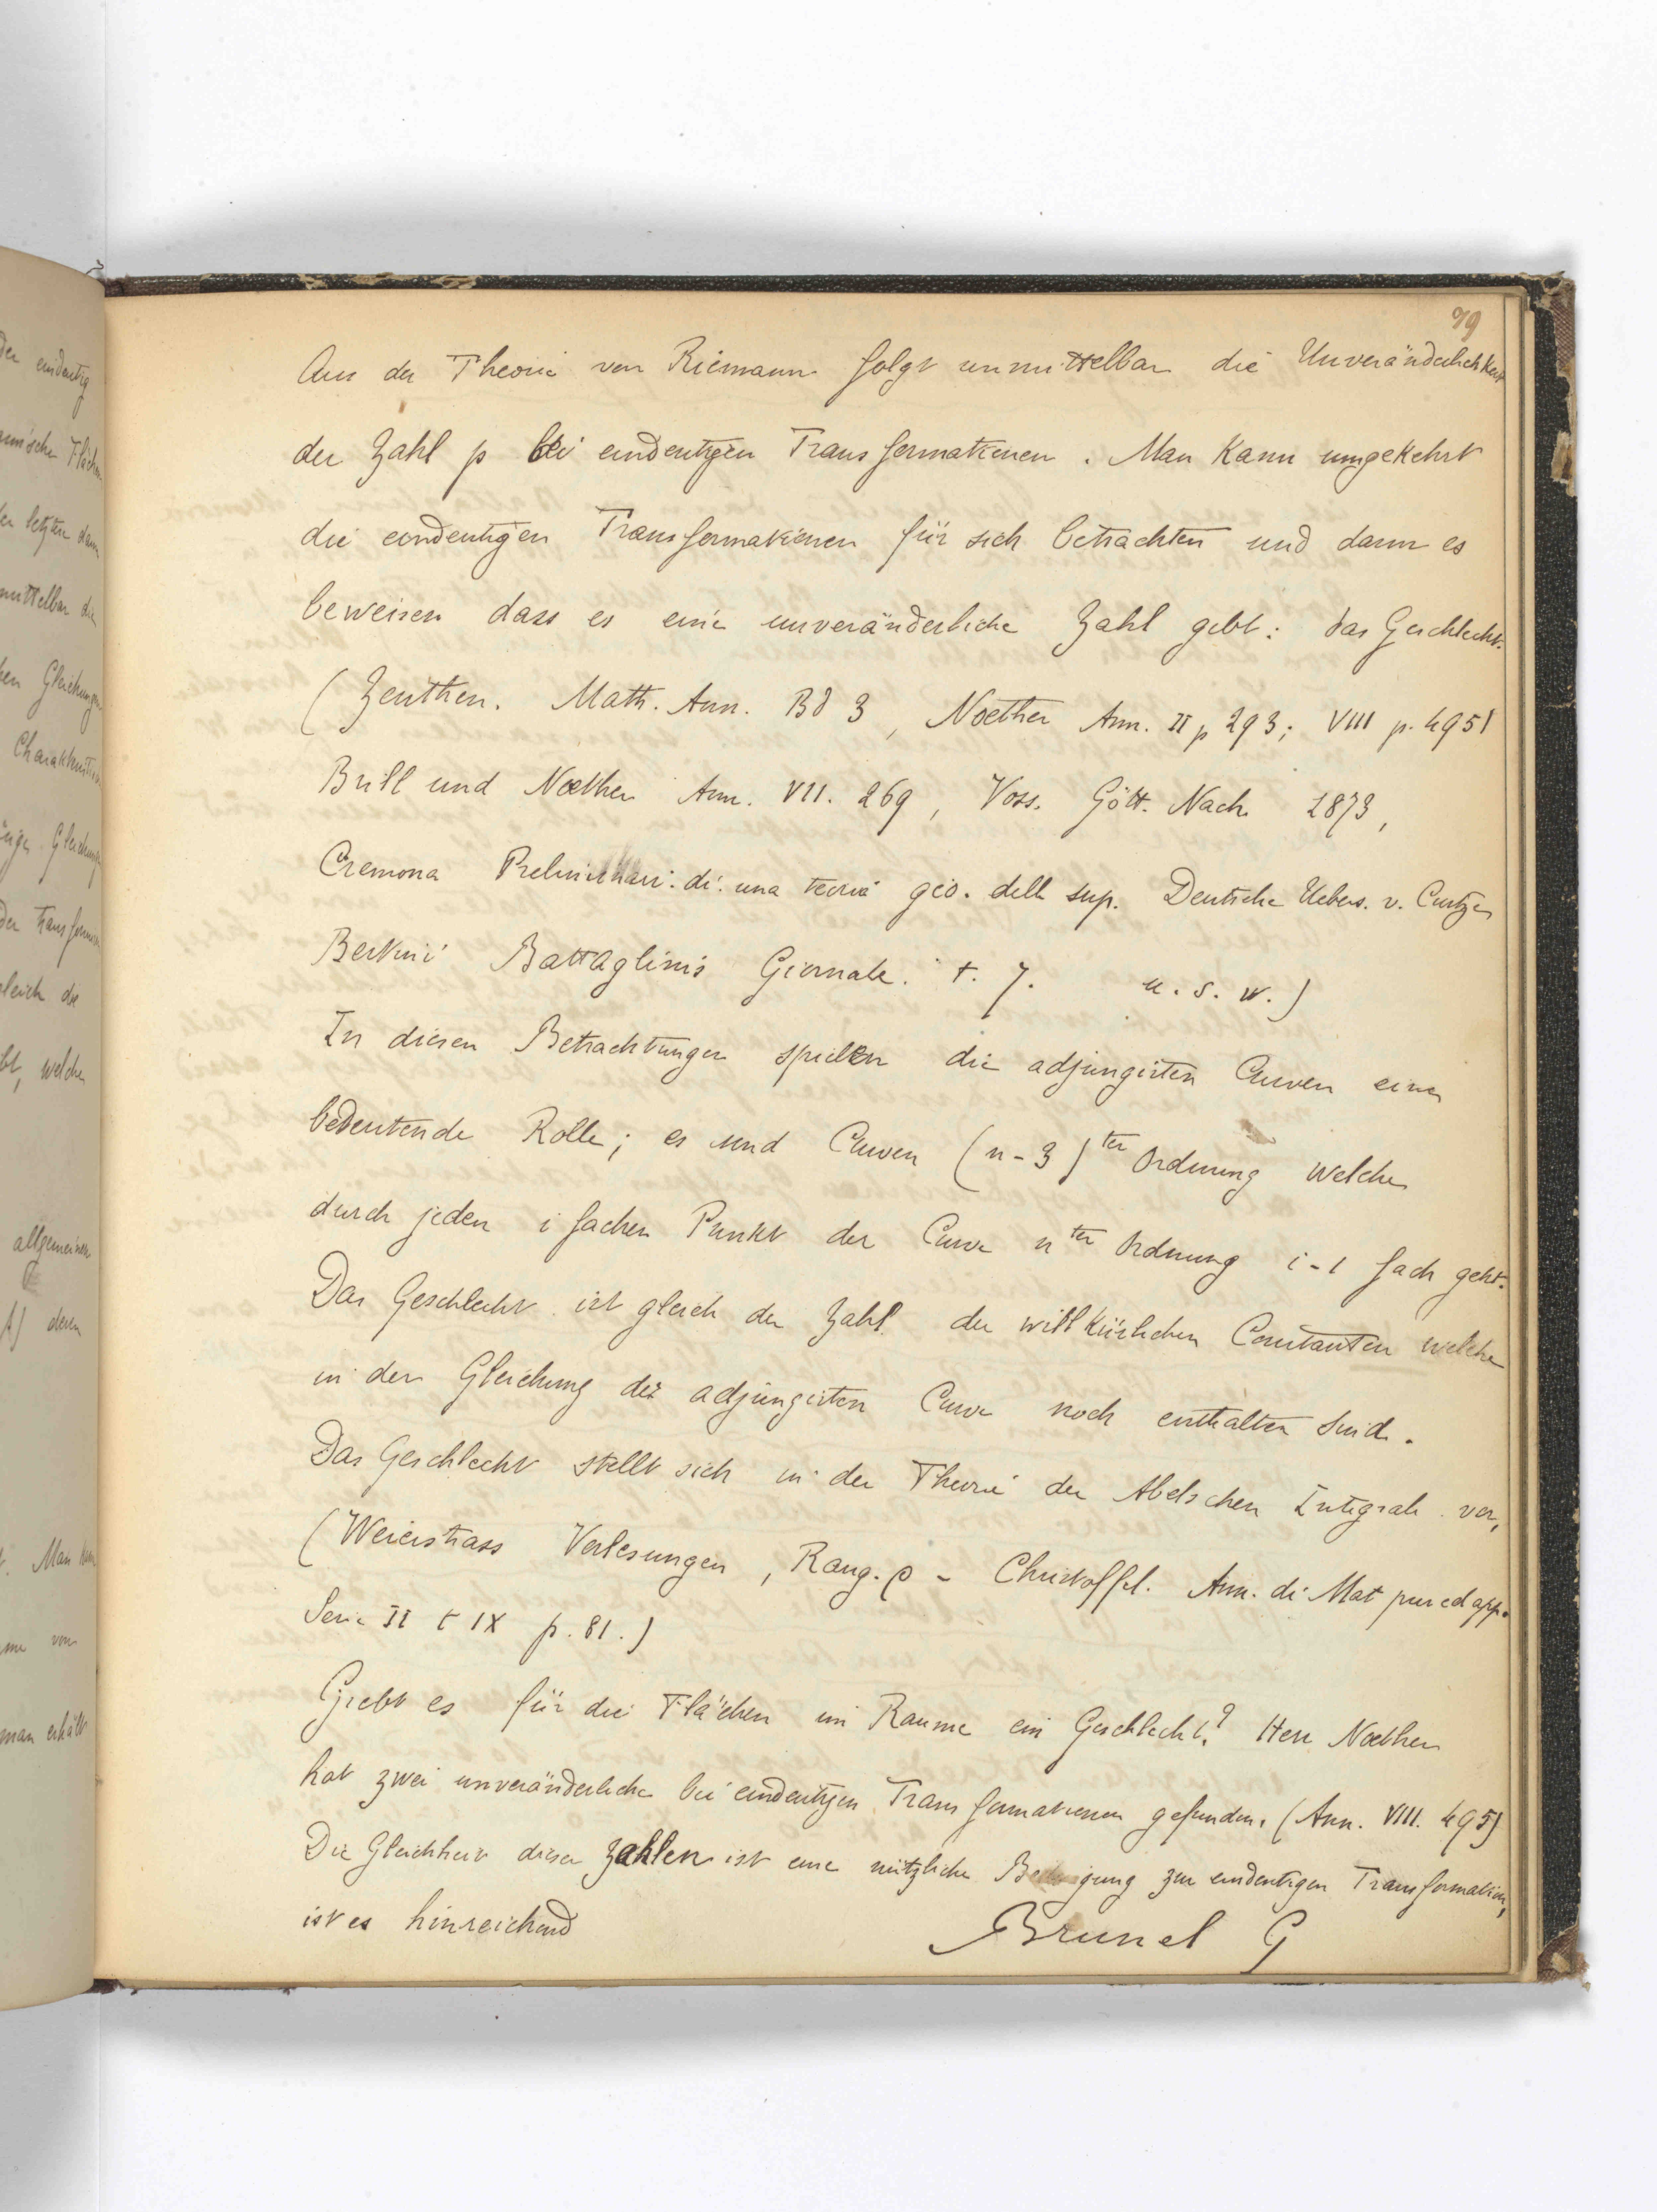 99
Aus der Theorie von Riemann folgt unmittelbar die Unveränderlichkeit
der Zahl p bei eindeutigen Transformationen. Man kann umgekehrt
die eindeutigen Transformationen für sich betrachten und dann es
beweisen dass es eine unveränderliche Zahl gebt: das Geschlecht.
(Zeuthen. Math. Ann. Bd 3, Noether Ann. II p 293; VIII p. 495)
Brill und Noether Ann. VII. 269, Voss. Gött. Nach. 1873,
Cremona Preliminari di una teoria geo. delle sup. Deutsche Uebers. v. Curtze
Bertini Battaglinis Giornale. t. 7. u. s. w.)
In diesen Betrachtungen spielen die adjungirten Curven eine
bedeutende Rolle; es sind Curven (n-3)ter Ordnung welche
durch jeden i fachen Punkt der Curve nter Ordnung i-1 fach geht.
Das Geschlecht ist gleich der Zahl der willkürlichen Constanten welche
in der Gleichung der adjungirten Curve noch enthalten sind.
Das Geschlecht stellt sich in der Theorie der Abelschen Integrale vor,
(Weierstrass Vorlesungen, Rang. ρ - Christoffel. Ann. di Mat pur ed app.
Serie II t IX p. 81.)
Giebt es für die Flächen im Raume ein Geschlecht? Herr Noether
hat zwei unveränderliche bei eindeutigen Transformationen gefunden. (Ann. VIII. 495)
Die Gleichheit dieser Zahlen ist eine nützliche Bedingung zur eindeutigen Transformation,
ist es hinreichend
Brunel G
der eindeutig
letzten dann
unmittelbar die
Gleichungen
Gleichung
der Transformation
gleich die
welche
allgemeinen
deren
Man kann
von
man erhält